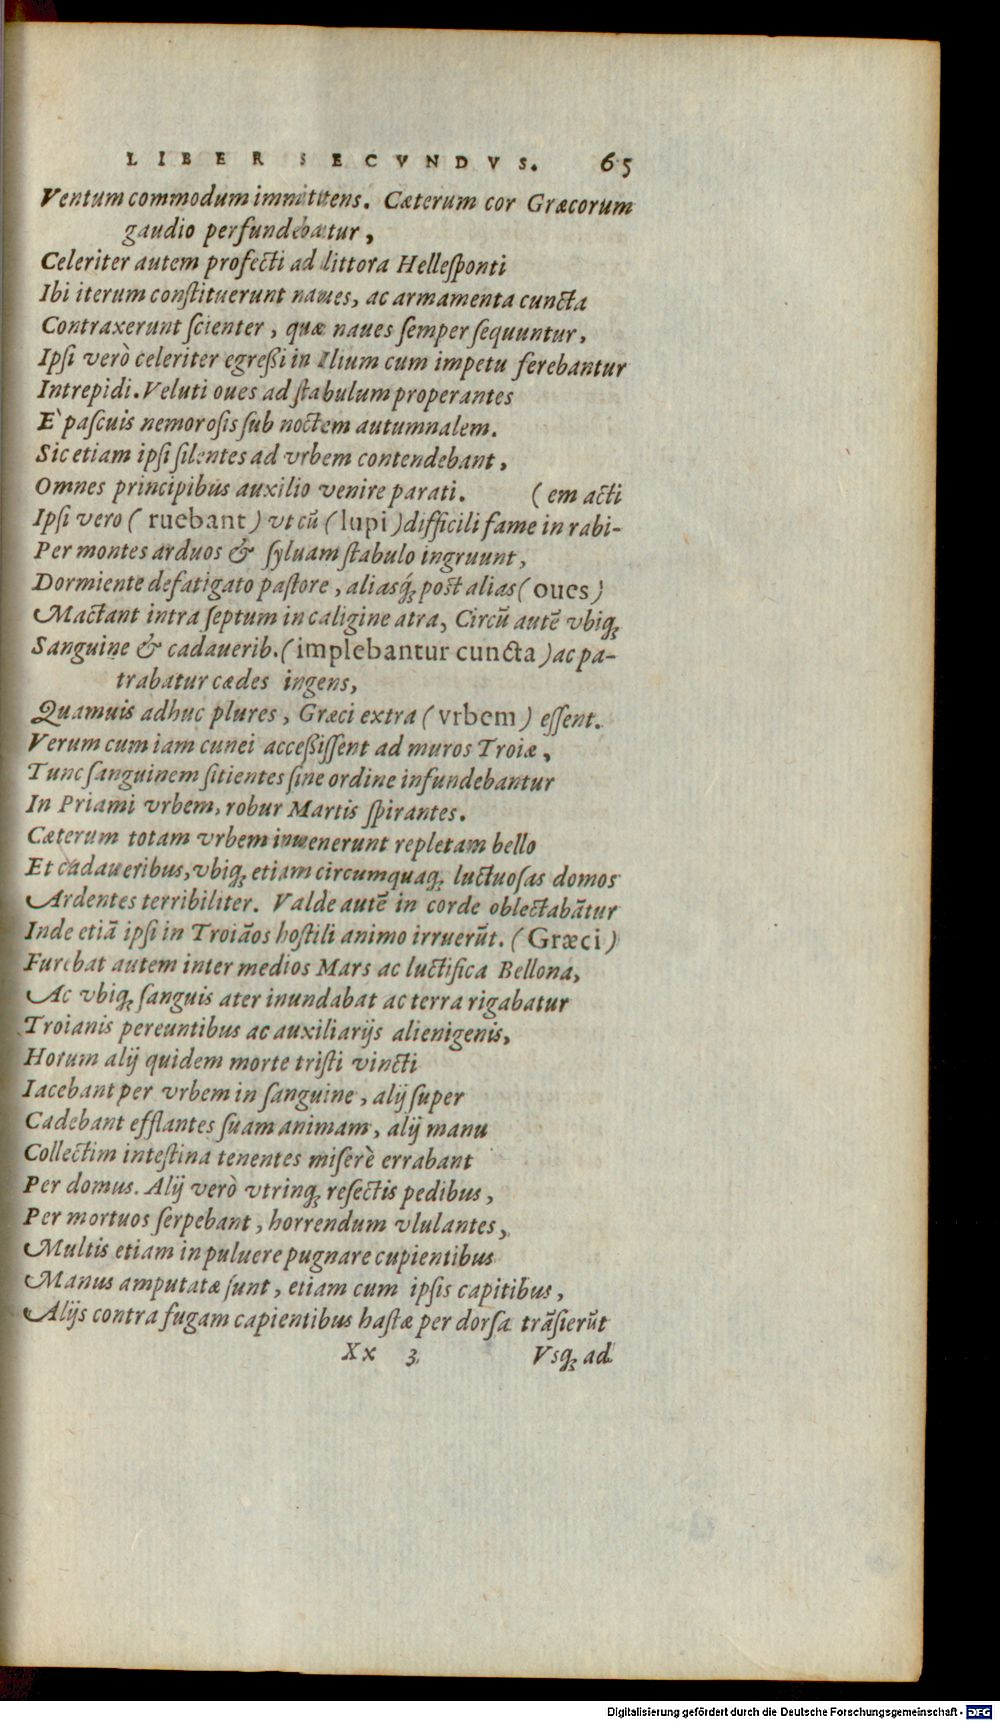 LIBER SECVNDVS. 65
Ventum commodum immittens. Cæterum cor Græcorum
gaudio perfundebatur,
Celeriter autem profecti ad littora Helleſponti
Ibi iterum conſtituerunt naues, ac armamenta cuncta
Contraxerunt ſcienter, quæ naues ſemper ſequuntur,
Ipſi verò celeriter egreßi in Ilium cum impetu ferebantur
Intrepidi. Veluti oues ad ſtabulum properantes
E` paſcuis nemoroſis ſub noctem autumnalem.
Sic etiam ipſi ſilentes ad vrbem contendebant,
Omnes principibus auxilio venire parati. (em acti
Ipſi vero (ruebant) vt cū (lupi) difficili fame in rabi-
Per montes arduos & ſyluam ſtabulo ingruunt,
Dormiente defatigato paſtore, aliasq́; poſt alias (oues)
Mactant intra ſeptum in caligine atra, Circū autē vbiq;
Sanguine & cadauerib. (implebantur cuncta) ac pa-
trabatur cædes ingens,
Quamuis adhuc plures, Græci extra (vrbem) eſſent.
Verum cum iam cunei acceßiſſent ad muros Troiæ,
Tunc ſanguinem ſitientes ſine ordine infundebantur
In Priami vrbem, robur Martis ſpirantes.
Cæterum totam vrbem inuenerunt repletam bello
Et cadaueribus, vbiq; etiam circumquaq; luctuoſas domos
Ardentes terribiliter. Valde autē in corde oblectabātur
Inde etiā ipſi in Troiāos hoſtili animo irruerūt. (Græci)
Furebat autem inter medios Mars ac luctifica Bellona,
Ac vbiq; ſanguis ater inundabat ac terra rigabatur
Troianis pereuntibus ac auxiliarijs alienigenis,
Horum alij quidem morte triſti vincti
Iacebant per vrbem in ſanguine, alij ſuper
Cadebant efflantes ſuam animam, alij manu
Collectim inteſtina tenentes miſerè errabant
Per domus. Alij verò vtrinq; reſectis pedibus,
Per mortuos ſerpebant, horrendum vlulantes,
Multis etiam in puluere pugnare cupientibus
Manus amputatæ ſunt, etiam cum ipſis capitibus,
Alijs contra fugam capientibus haſtæ per dorſa trāſierūt
Xx 3 Vsq; ad
Digitalisierung gefördert durch die Deutsche Forschungsgemeinschaft - DFG